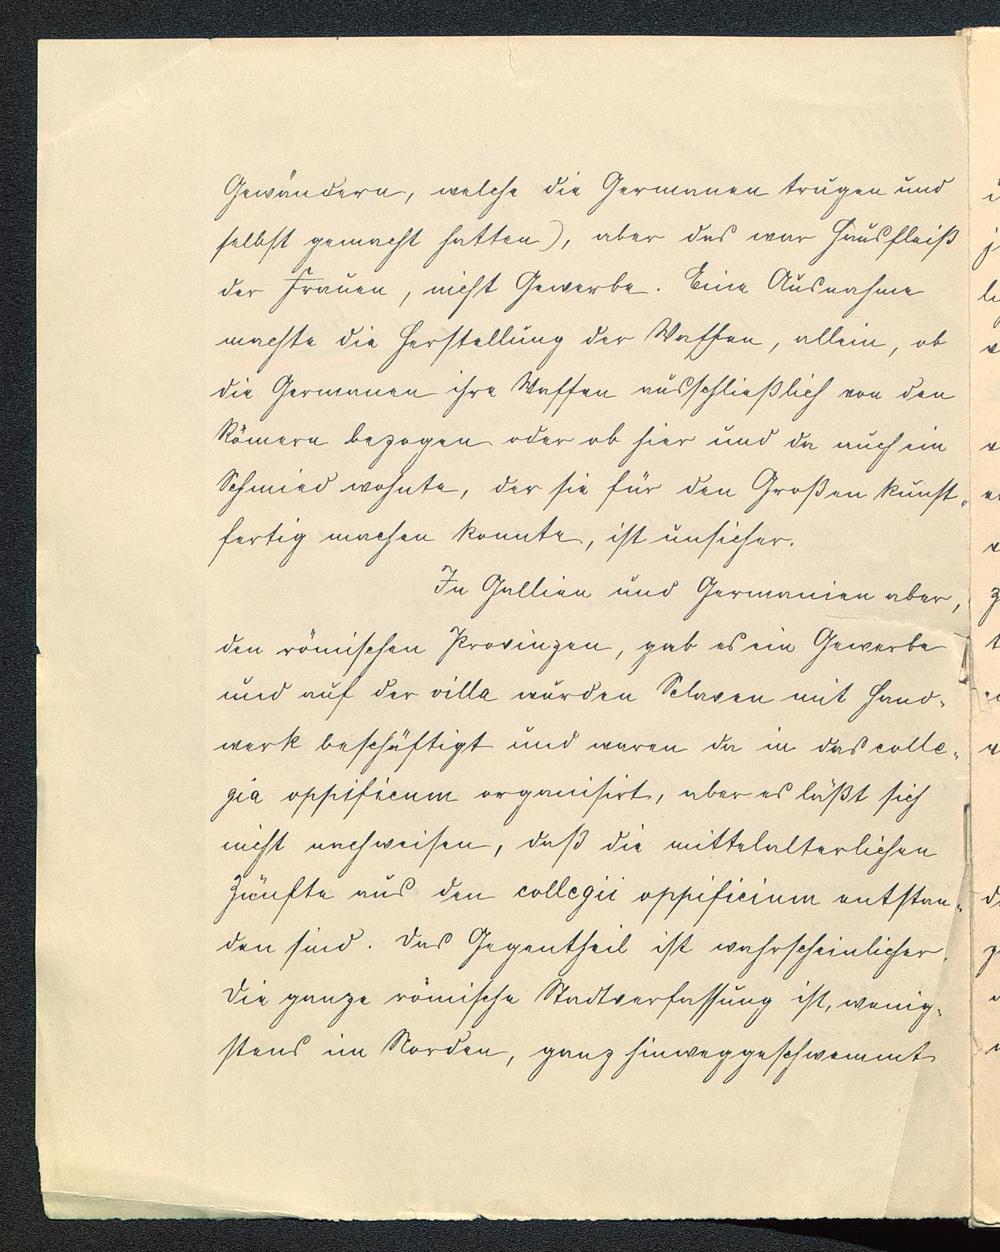 Gewändern, welche die Germanen trugen und
selbst gemacht hatten), aber das war Hausfleiß
der Frauen, nicht Gewerbe. Eine Ausnahme
machte die Herstellung der Waffen, allein, ob
die Germanen ihre Waffen ausschließlich von den
Römern bezogen oder ob hier und da auch ein
Schmied wohnte, der sie für den Großen kunst-
fertig machen konnte, ist unsicher.
In Gallien und Germanien aber,
den römischen Provinzen, gab es ein Gewerbe
und auf der villa wurden Sclaven mit Hand-
werk beschäftigt und waren da in das colle-
gia oppificum organisirt, aber es läßt sich
nicht nachweisen, daß die mittelalterlichen
Zünfte aus den collegii oppificium entstan-
den sind. Das Gegentheil ist wahrscheinlicher.
Die ganze römische Stadtverfassung ist, wenig-
stens im Norden, ganz hinweggeschwemmt